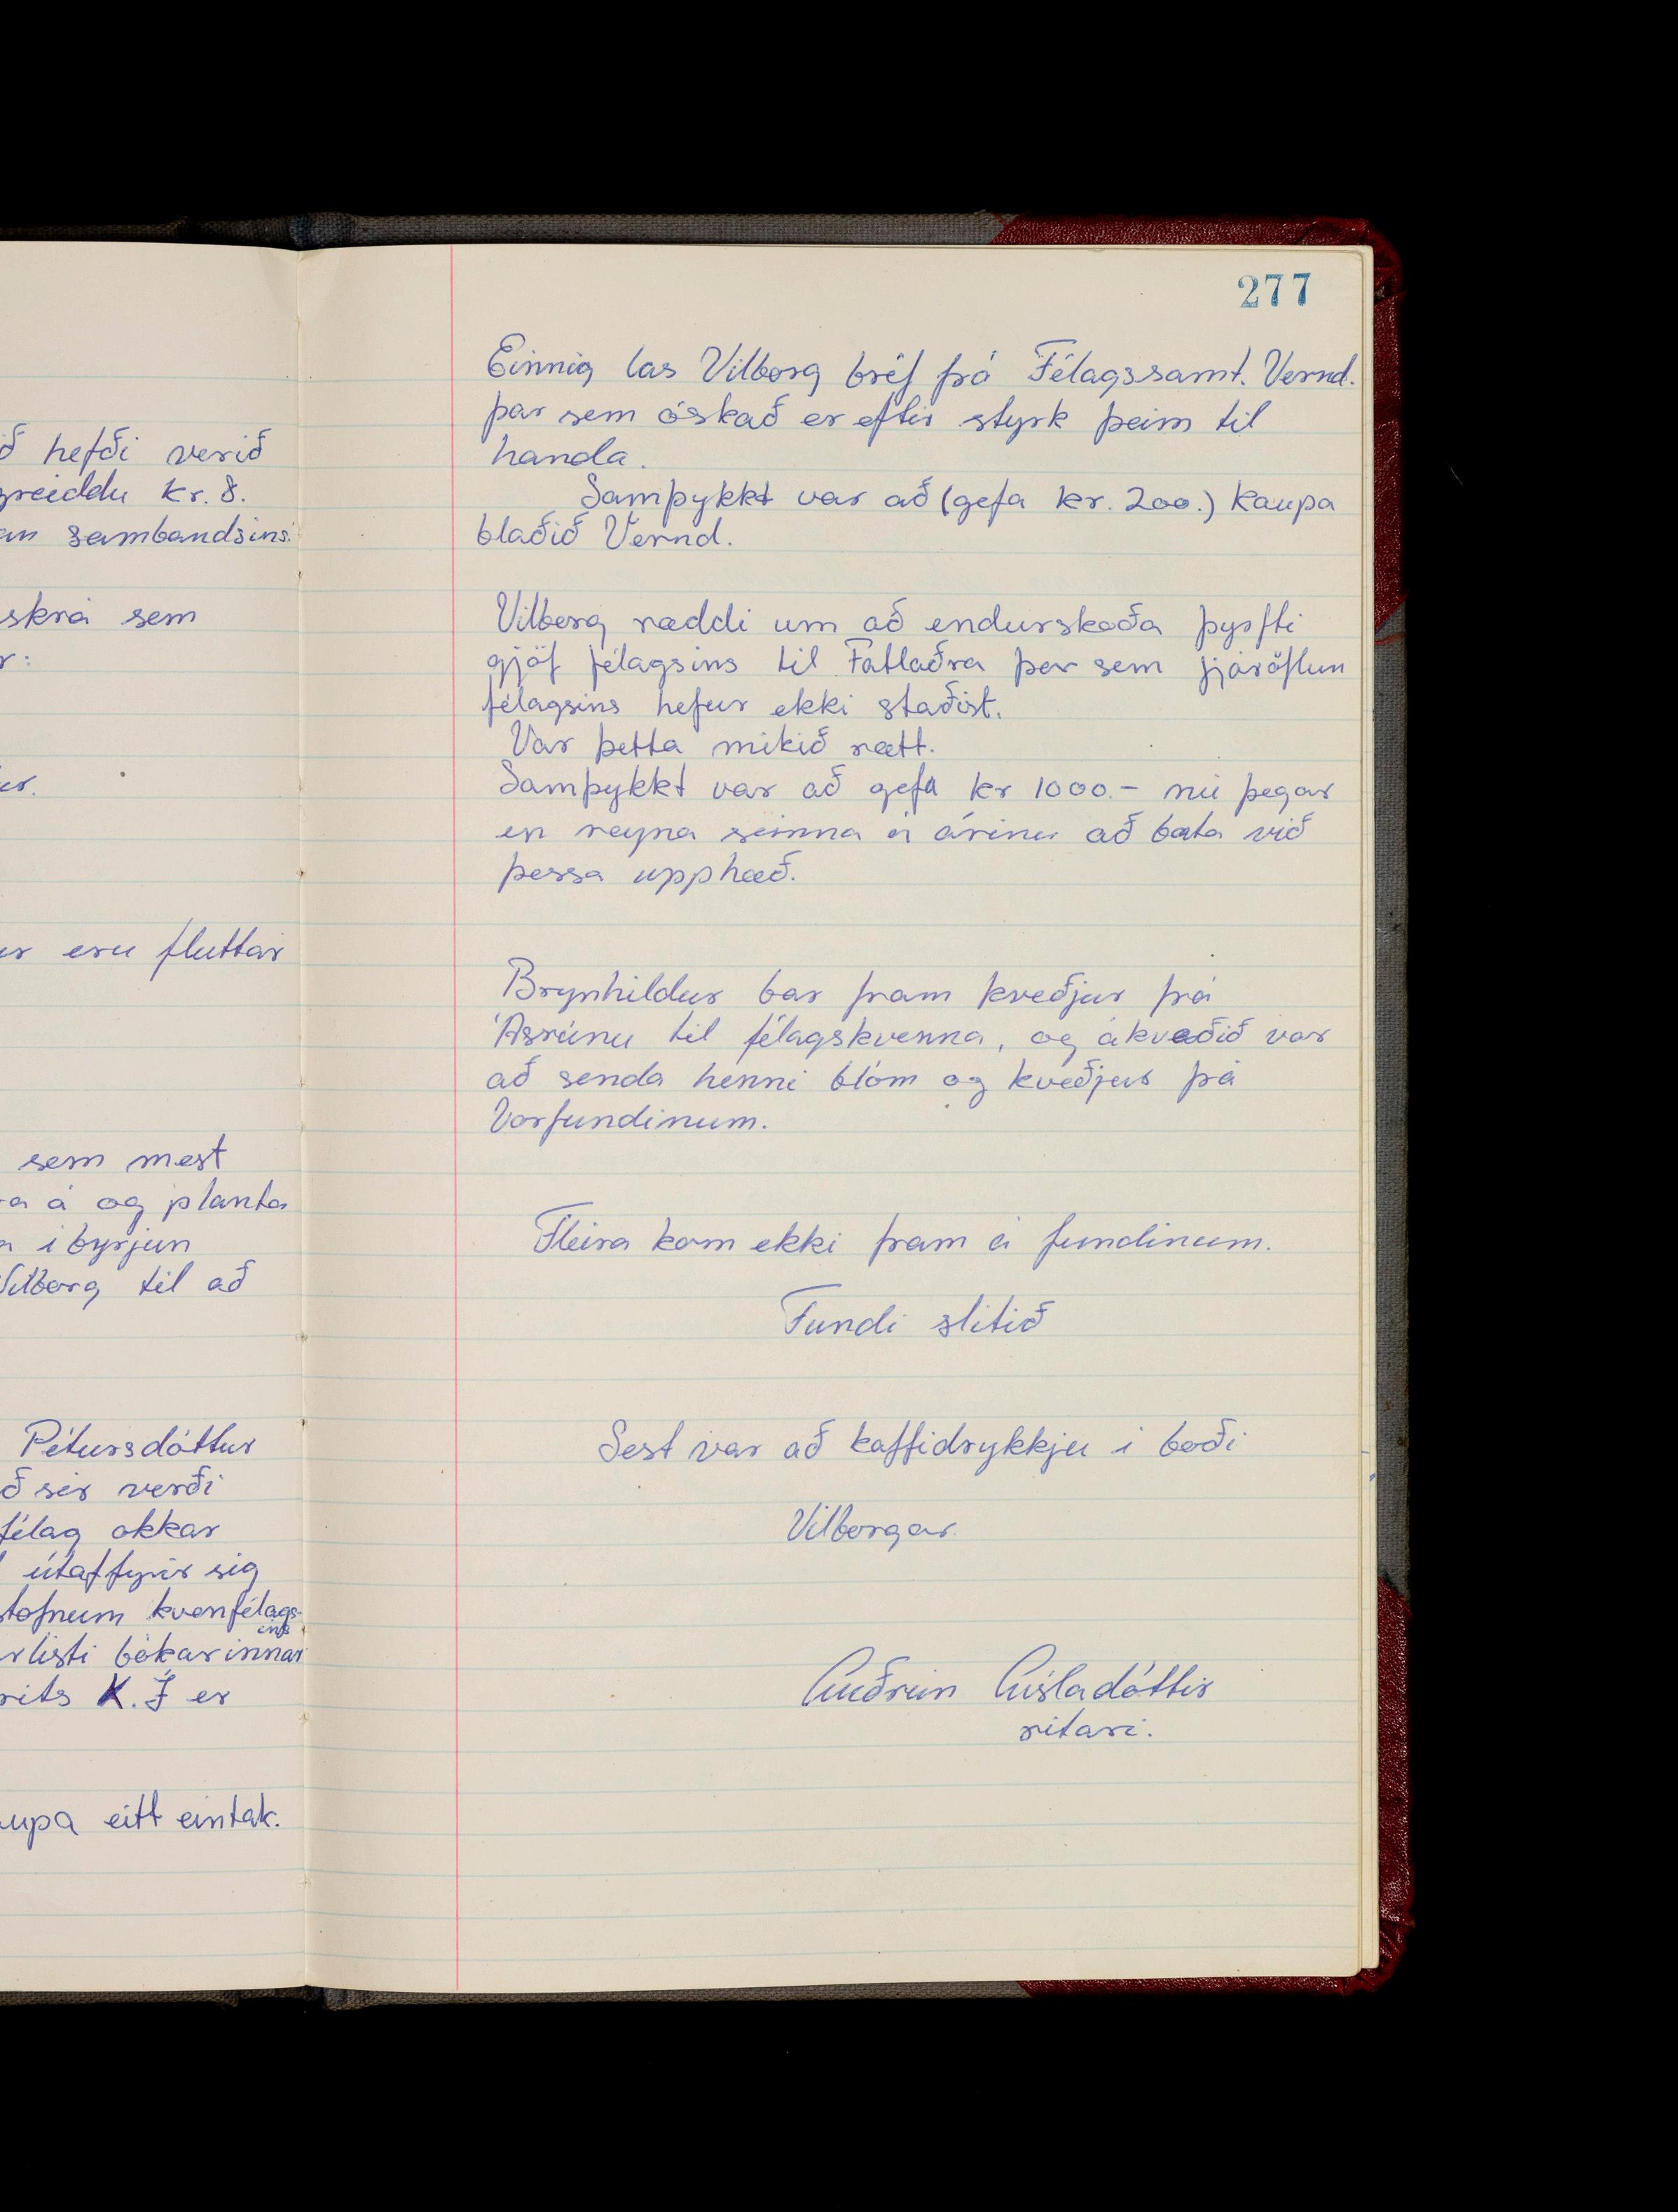 ð hefði verið
greiddu kr. 8.
an sambandsins.
skrá sem
r:
ur.
ur eru fluttar
sem mest
ra á og planta
a í byrjun
Vilborg til að
Pétursdóttur
ð sér verði
félag okkar
útaf fyrir sig
stofnum kvenfélags-
ins
rlisti bókarinnar
rits K.Í er
aupa eitt eintak.
277
Einnig las Vilborg bréf frá Félagssamt. Vernd.
þar sem óskað er eftir styrk þeim til
handa.
Samþykkt var að (gefa kr. 200.) kaupa
blaðið Vernd.
Vilborg ræddi um að endurskoða þyrfti
gjöf félagsins til Fatlaðra þar sem fjáröflun
félagsins hefur ekki staðist.
Var þetta mikið rætt.
Samþykkt var að gefa kr 1000.- nú þegar
en reyna seinna á árinu að bæta við
þessa upphæð.
Brynhildur bar fram kveðjur frá
Ásrúnu til félagskvenna, og ákveðið var
að senda henni blóm og kveðjur frá
Vorfundinum.
Fleira kom ekki fram á fundinum.
Fundi slitið
Sest var að kaffidrykkju í boði
Vilborgar.
Guðrún Gísladóttir
ritari.